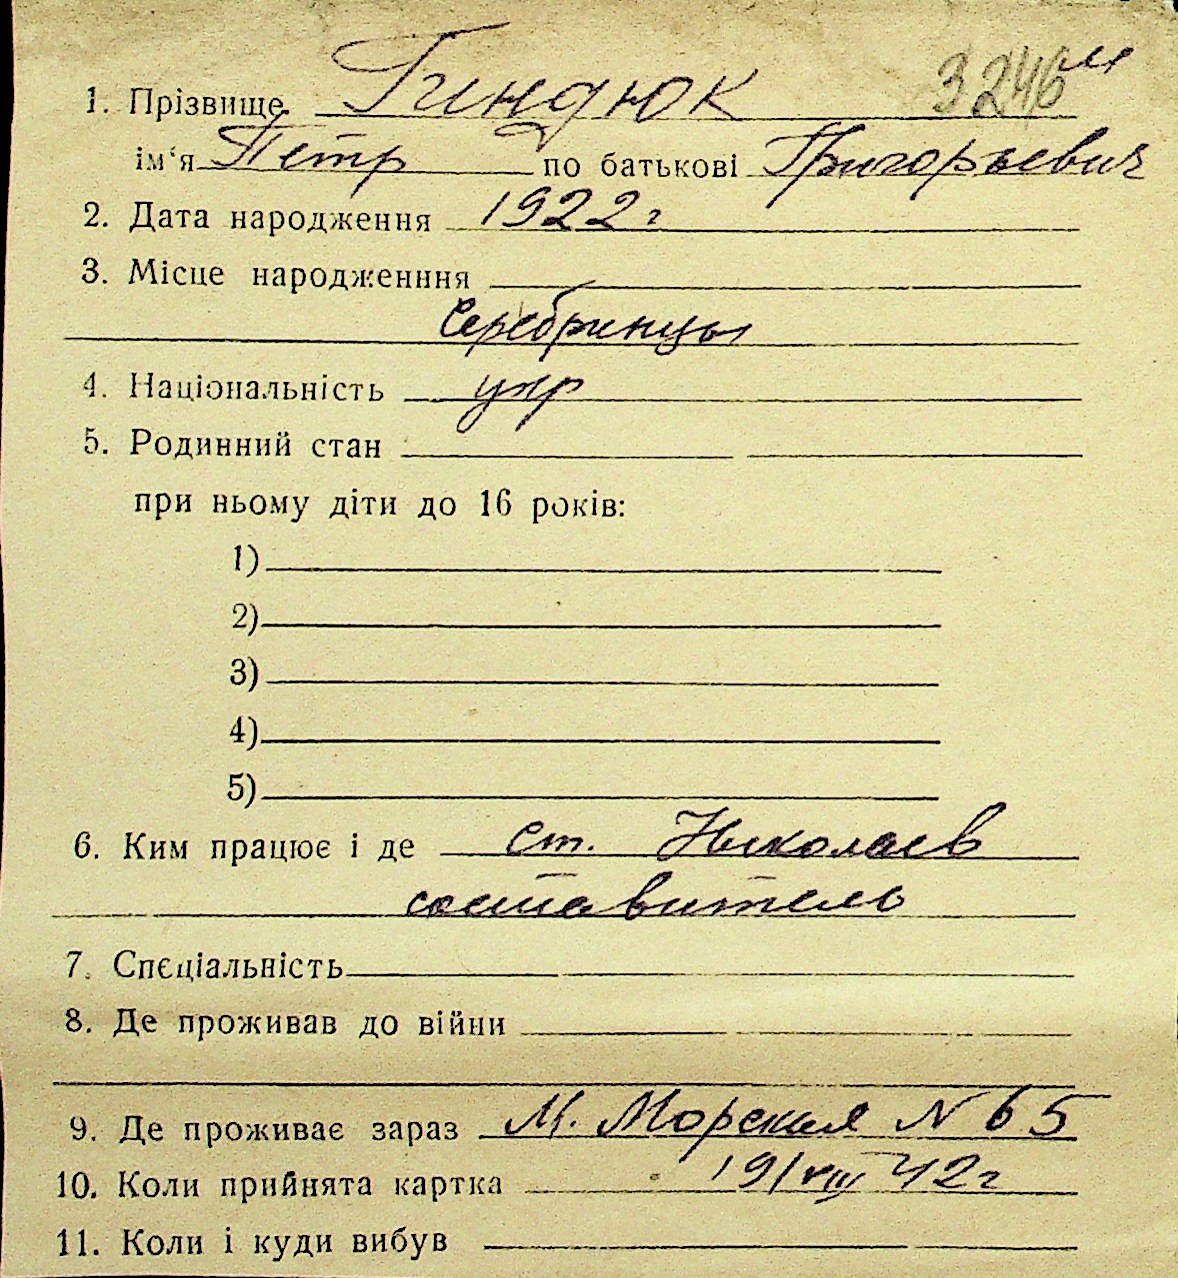 3246 м
1. Прізвище Гиндюк
ім'я Петр по батькові Григорьевич
2. Дата народження 1922 г
3. Місце народженння
Серебринцы
4. Національність укр
5. Родинний стан
при ньому діти до 16 років:
1)
2)
3)
4)
5)
6. Ким працює і де ст. Николаев
составитель
7. Спєціальність
8. Де проживав до війни
9. Де проживає зараз М. Морская N 65
10. Коли прийнята картка 19/VIII 42 г
11. Коли і куди вибув